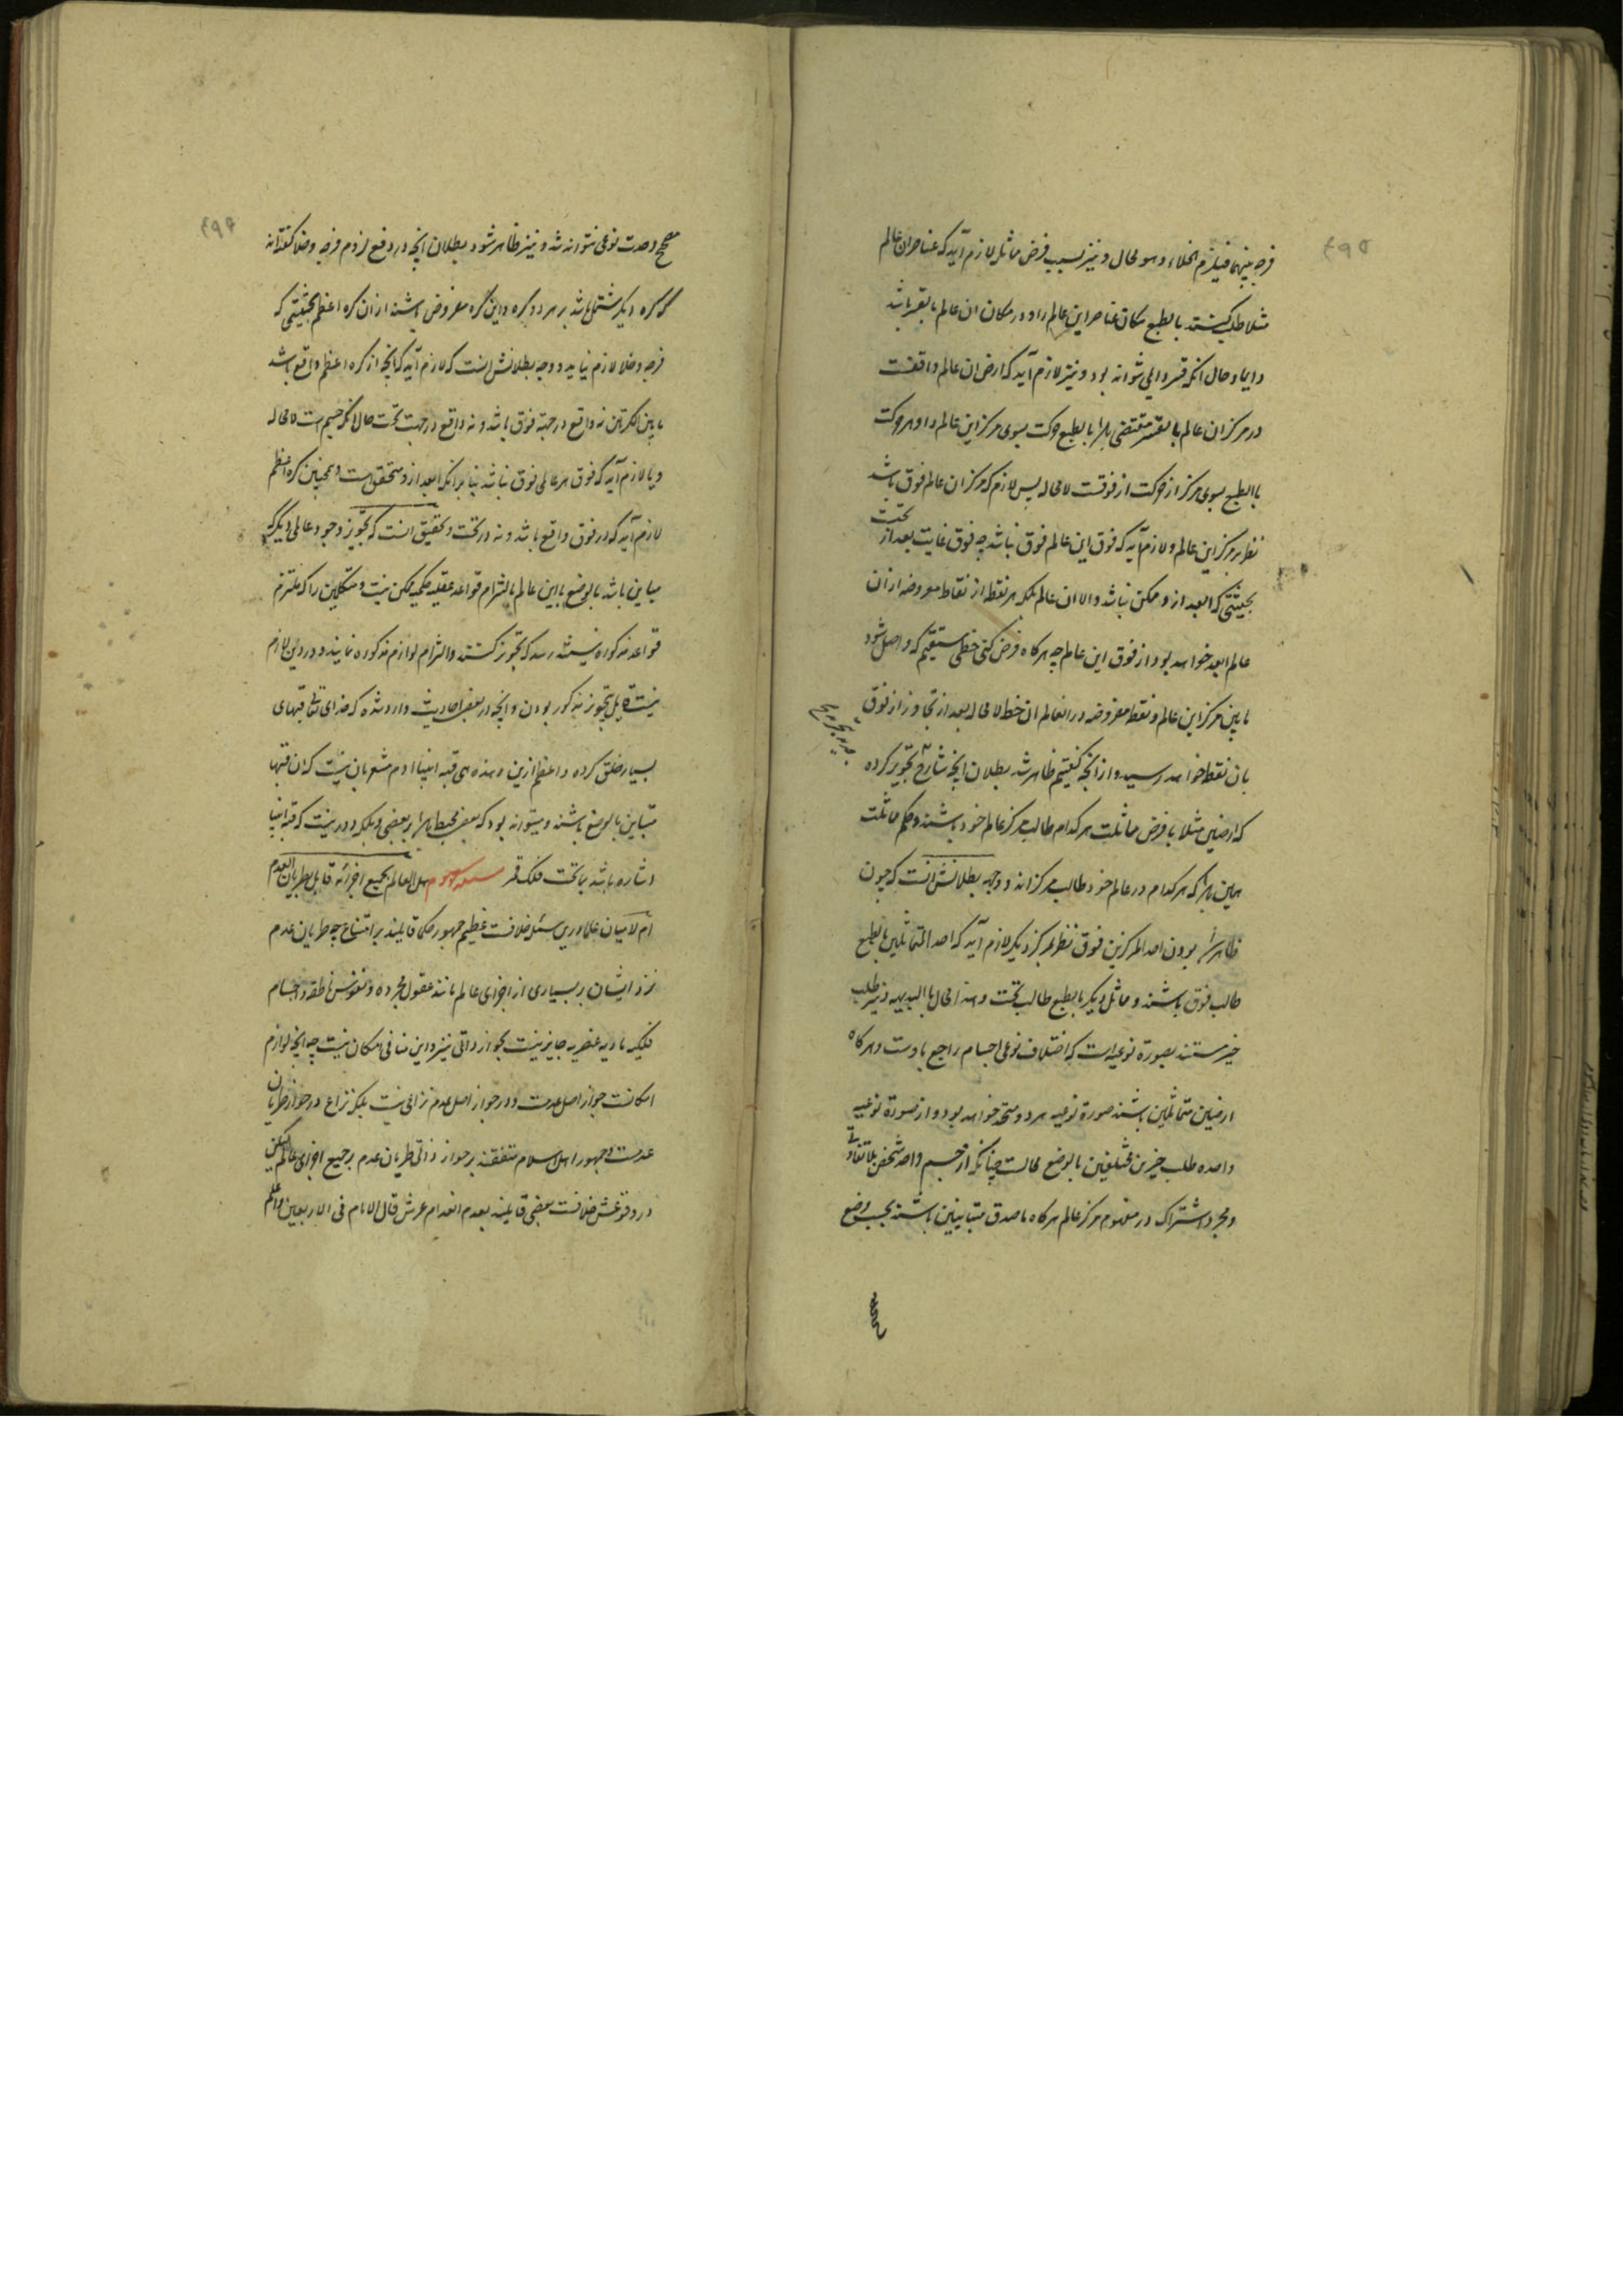 ٤٩٥
فرجه بینهما فیلزم الخلاء وهو محال و نیز بسبب فرض مماثل لازم آید که عناصر ان عالم
مثلا طلب کنند بالطبع مکان عناصر این عالم را و در مکان ان عالم بالقسر باشد
دایما و حال انکه قسر دایمی نتواند بود و نیز لازم آید که ارض ان عالم واقفست
در مرکز ان عالم بالقسر مقتضی باشد بالطبع حرکت بسوی مرکز این عالم را و هر حرکت
باالطبع بسوی مرکز از حرکت از فوقست لامحاله پس لازم که مرکز ان عالم فوق باشد
نظر بمرکز این عالم و لازم آید که فوق این عالم فوق نباشد چه فوق غایت بعد از تحت
بحیثیتی که ابعد از و ممکن نباشد والا ان عالم بلکه هر نقطه از نقاط مفروضه از ان
عالم ابعد خواهد بود از فوق این عالم چه هر کاه فرض کنی خطی مستقیم که واصل شود
مابین مرکز این عالم و نقطه مفروضه در انعالم ان خط لامحاله بعد از تجاوز از فوق
بان نقطه خواهد رسید و از انچه گفتیم ظاهر شد بطلان انچه شارح تجویز کرده
که ارضین مثلا با فرض مماثلت هر کدام طالب مرکز عالم خود باشند و حکم مماثلت
همین باشد که هر کدام در عالم خود طالب مرکزاند و وجه بطلانش انست که چون
ظاهر شد بودن احد المرکزین فوق نظر بمرکز دیگر لازم آید که احد المتماثلین بالطبع
طالب فوق باشند و مماثل دیگر بالطبع طالب تحت و هذا محال باالبدیهه و نیز طلب
حیز مستند بصورة نوعیه است که اختلاف نوعی اجسام راجع باوست و هر کاه
ارضین متماثلین باشند صورة نوعیه هر دو متحد خواهد بود و از صورة نوعیه
واحده طلب حیزین مختلفین بالوضع محالست چنانکه از جسم واحد شخص بلا تفاوت
و مجرد اشتراک در مفهوم مرکز عالم هر کاه ماصدق متباینین باشند بحسب وضع
٤٩٦
مصحح وحدت نوعی نتواند شد و نیز ظاهر شود بطلان انچه در دفع لزوم فرجه و خلا گفته‌اند
که کره دیگر مشتمل باشد بر هر دو کره و این کره مفروض باشند از ان کره اعظم بحیثیتی که
فرجه و خلا لازم نیاید و وجه بطلانش انست که لازم آید که انچه از کره اعظم واقع باشد
مابین الکرتین نه واقع در جهة فوق باشد و نه واقع در جهت تحت حال انکه جسم است لامحاله
و یا لازم آید که فوق هر عالمی فوق نباشد بنا برانکه ابعد از و متحقق است و همچنین کره اعظم
لازم آید که در فوق واقع باشد و نه در تحت و تحقیق انست که تجویز وجود عالمی دیگر که
مباین باشد بالوضع بااین عالم باالتزام قواعد عقلیه حکمیه ممکن نیست و متکلمین را که ملتزم
قواعد مذکوره نیستند رسد که تجویز کنند والتزام لوازم مذکوره نمایند و در دین لازم
نیست قایل بتجویز مذکور بودن و انچه در بعض احادیث وارد شده که خدای تعالی قبهای
بسیار خلق کرده و اعظم از این و هذه هی قبه ابینا ادم مشعر بان نیست که ان قبها
متباین بالوضع باشند و میتواند بود که بعض محیط باشد بر بعضی و بلکه دور نیست که قبه ابینا
اشاره باشد بما تحت فلک قمر هل العالم بجمیع اجزائه قابل لطریان العدم
ام لا میان علما درین مسئله خلافست عظیم جمهور حکما قایلند بر امتناع چه طریان عدم
نزد ایشان بر بسیاری از اجزای عالم مانند عقول مجرده و نفوس ناطقه و اجسام
فلکیه مادیه عنصریه جایز نیست بجواز ذاتی نیز و این منافی امکان نیست چه انچه لوازم
امکانست جواز اصل عدمست و در جواز اصل عدم نزاعی نیست بلکه نزاع در جواز طریان
عدمست و جمهور اهل اسلام متفقند بر جواز ذاتی طریان عدم بر جمیع اجزای عالم لیکن
در وقوعش خلافست بعضی قایلند بعدم انعدام عرش قال الامام فی الاربعین واعلم